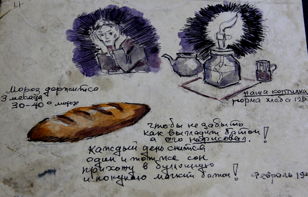 Мороз держится
3 месяца
30-40° мороз
наша коптилка
норма хлеба 125
чтобы не забыть
как выглядит батон
я его нарисовал!
Каждый день снится
один и тот же сон
прихожу в булочную
и покупаю мягкий батон!
Февраль 19